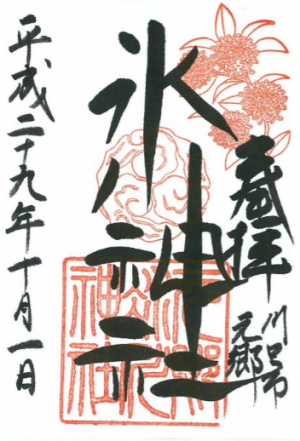 奉拝
川口市
元郷
氷川神社
元郷
氷川
神社
平成二十九年十月一日